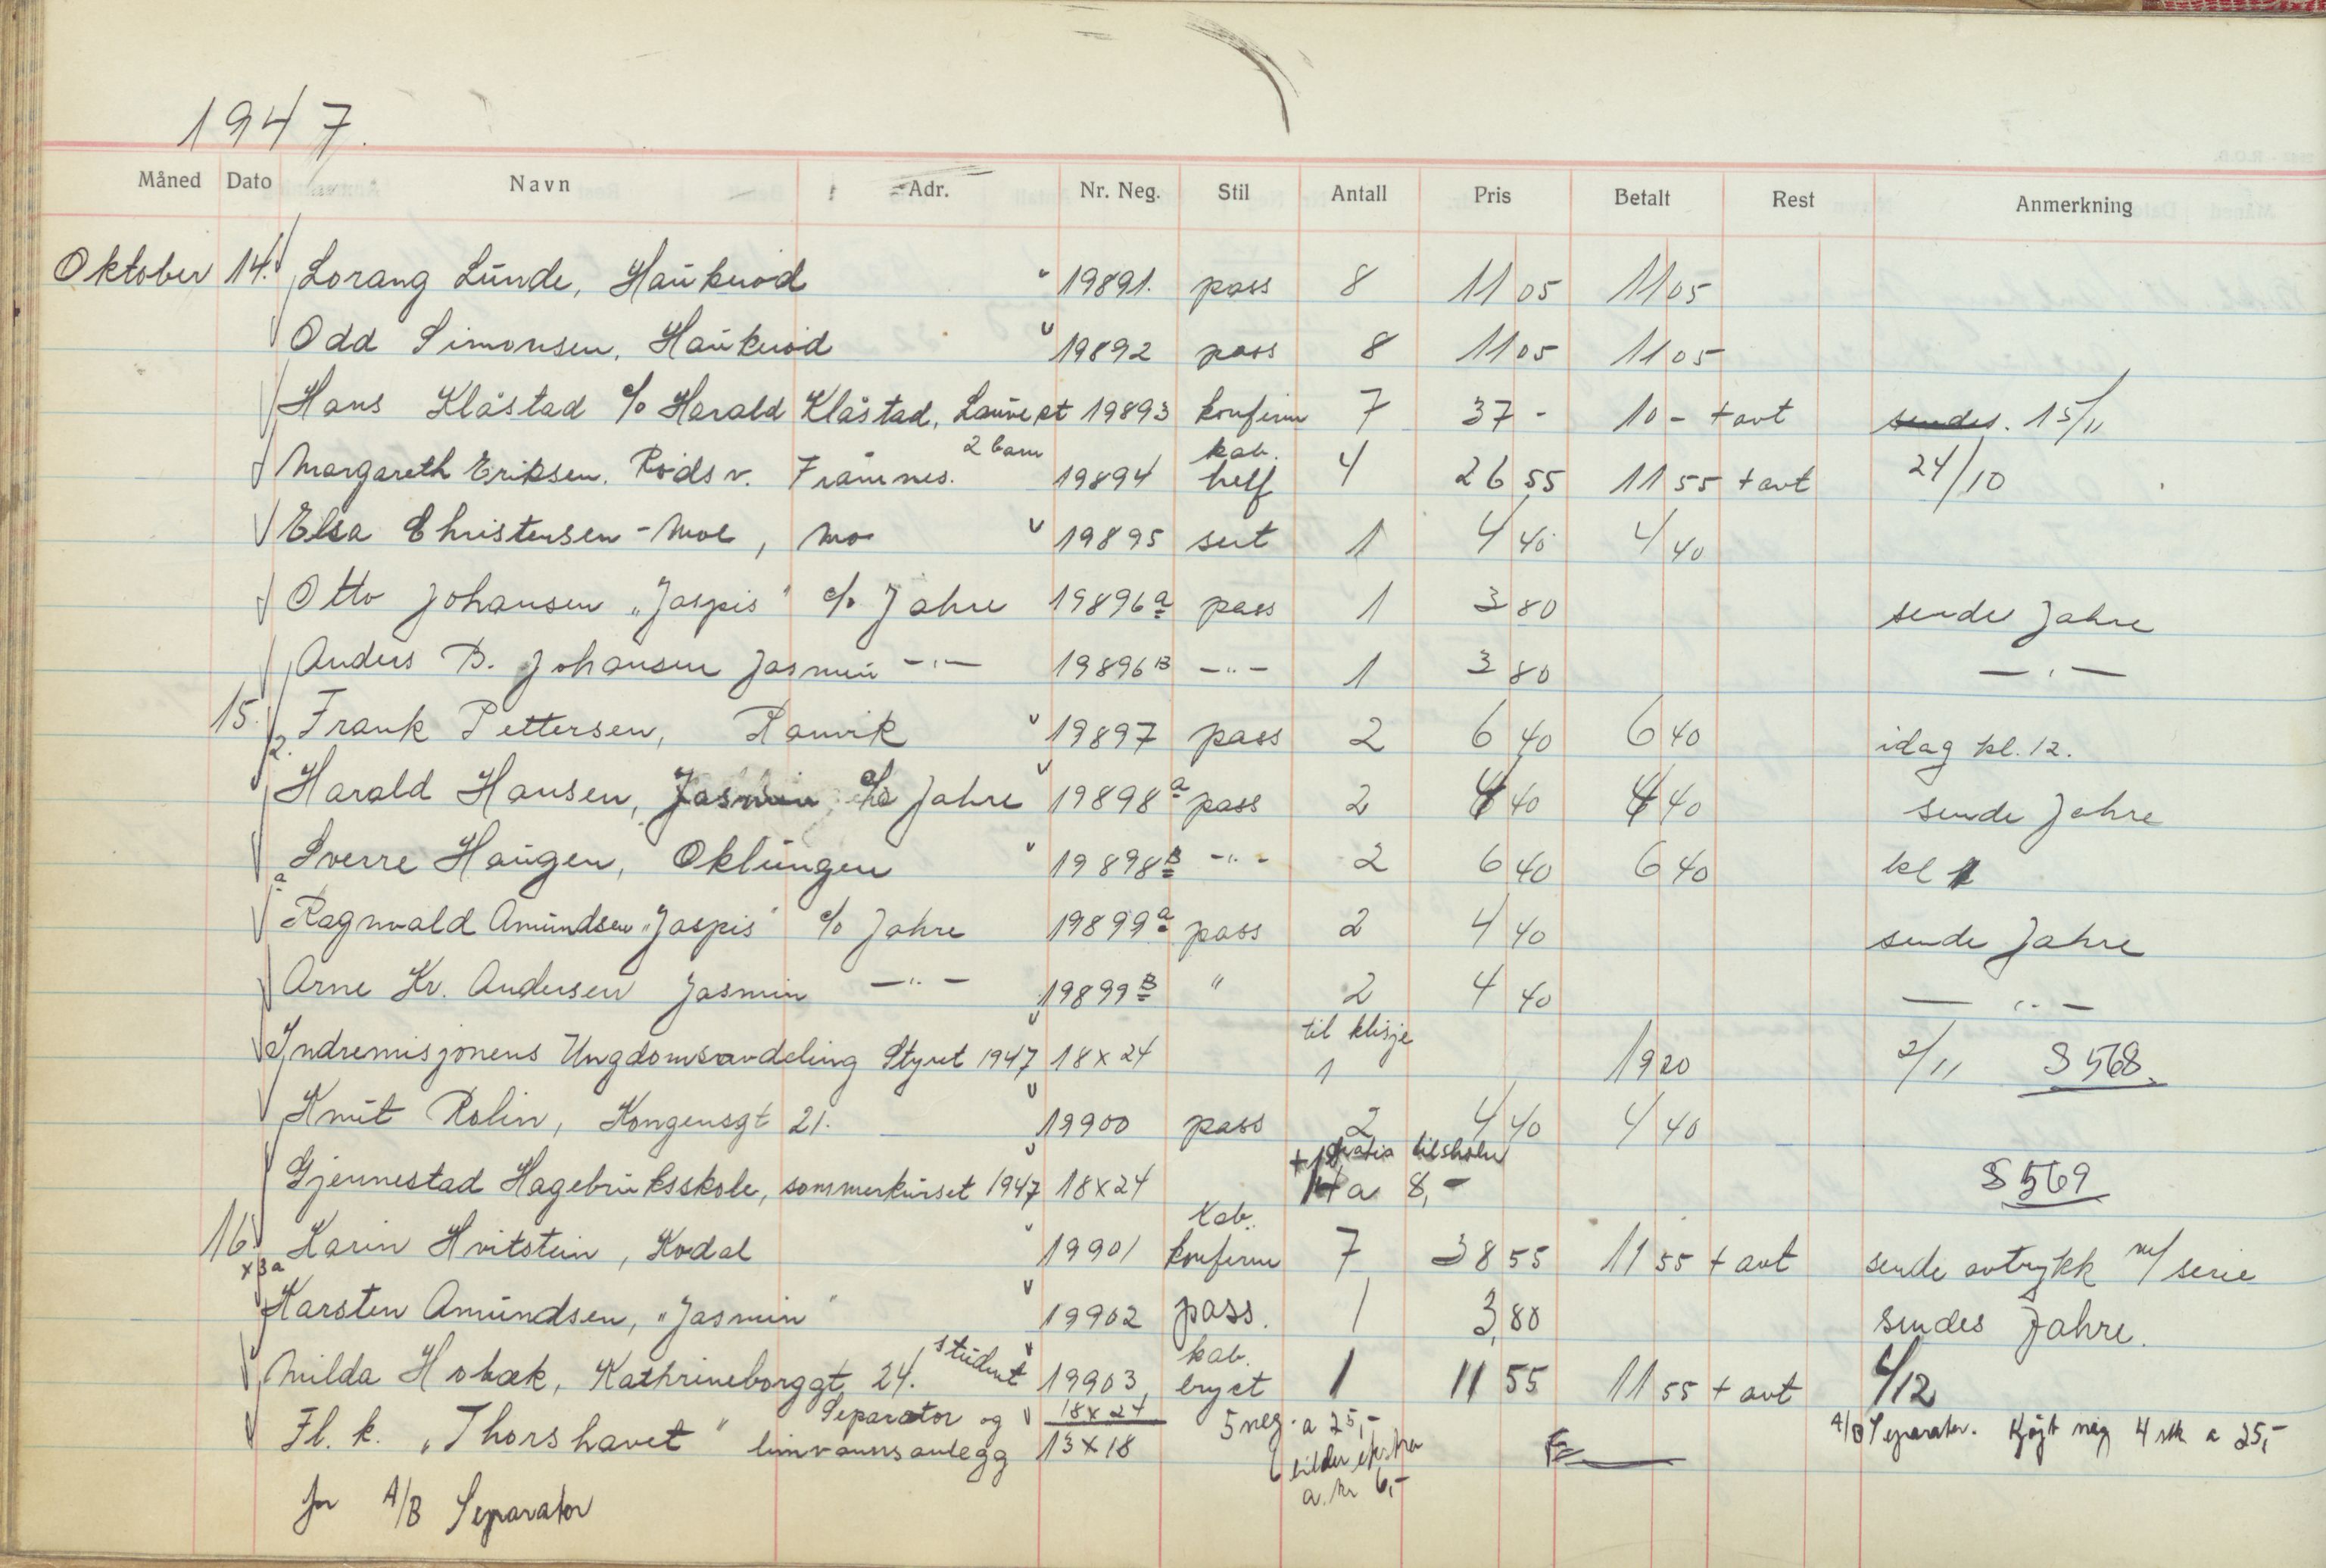 1947.
Måned Dato Navn Adr. Nr. Neg. Stil Antall Pris Betalt Rest Anmerkning
Oktober 14. Lorang Lunde, Haukerød 19891. pass 8 11 05 11 05
Odd Simonsen, Haukerød 19892 pass 8 11 05 11 05
Hans Klåstad c/o Harald Klåstad, Lauve st 19893 konfirm 7 37 - 10 - + avt sendes. 15/11
2 barn kab.
Margareth Eriksen. Røds v. Framnes. 19894 helf 4 26 55 11 55 + avt 24/10
Elsa Christensen - Moe, Mo 19895 sert 1 4 40 4 40
Otto Johansen "Jaspis" c/o Jahre 19896 a pass 1 3 80 sende Jahre
Anders B. Johansen Jasmin -"- 19896 B -"- 1 3 80 -"-
15. Frank Pettersen, Ranvik 19897 pass 2 6 40 6 40 idag kl. 12.
2. Harald Hansen, Jasmin c/o Jahre 19898 a pass 2 4 40 4 40 sende Jahre
Sverre Haugen, Oklungen 19898 B -"- 2 6 40 6 40 kl 1
a Ragnvald Amundsen "Jaspis" c/o Jahre 19899 a pass 2 4 40 sende Jahre
Arne Kr. Andersen Jasmin -"- 19899 B " 2 4 40 -"-
til klisje
Indremisjonens Ungdomsavdeling Styret 1947 18x24 1 19 20 2/11 S 568.
Knut Rolin, Kongensgt 21. 19900 pass 2 4 40 4 40
+ 1 gratis til skolen
Gjennestad Hagebruksskole, sommerkurset 1947 18x24 14 a 8,- S 569
Kab.
16. Karin Hvitstein, Kodal 19901 konfirm 7 38 55 11 55 + avt sende avtrykk m/ serie
x 3 a
Karsten Amundsen, "Jasmin" 19902 pass. 1 3,80 sendes Jahre.
student kab.
Milda Hobæk, Kathrineborggt 24. 19903, bryst 1 11 55 11 55 + avt 4/12
Separator og 18x24 5 neg. a 25,- A/B Separator. Kjøpt neg 4 stk a 25,-
Fl. k. "Thorshavet" limvannsanlegg 13x18 6 bilder ekstra
a. kr 6,-
for A/B Separator